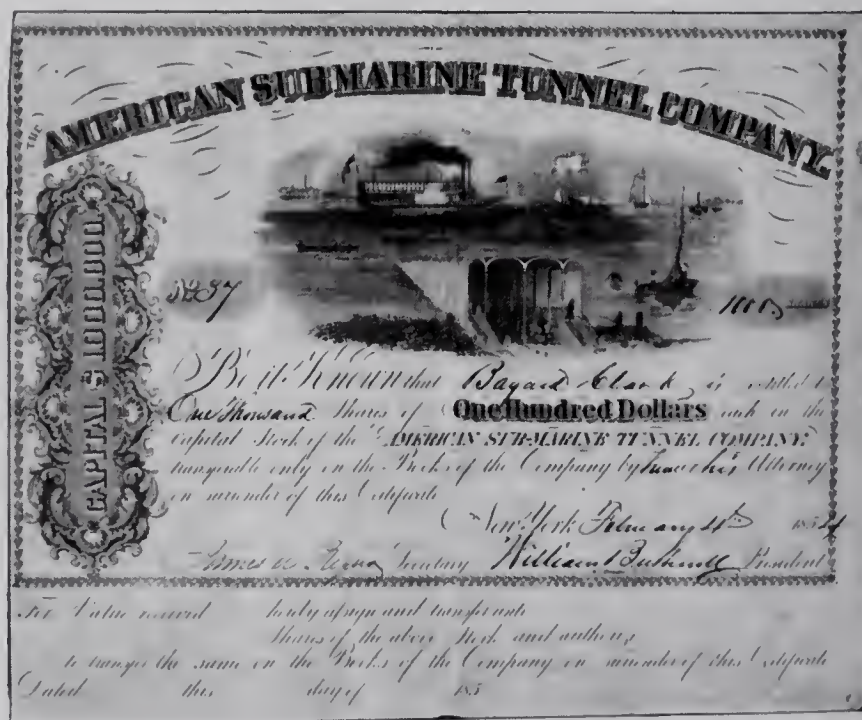 THE AMERICAN SUBMARINE TUNNEL COMPANY
CAPITAL $1000.000.
1000 Shares
Be it Known that Bayard Clark is entitled to
One thousand Shares of One Hundred Dollars each in the
Capital Stock of the AMERICAN SUB-MARINE TUNNEL COMPANY
transferable only on the Books of the Company by him or his Attorney
on surrender of this Certificate
New York February 185
Secretary William President
For Value received hereby assign and transfer unto
Shares of the above Stock and authorize
to transfer the same on the Books of the Company on surrender of this Certificate
Dated this day of 185